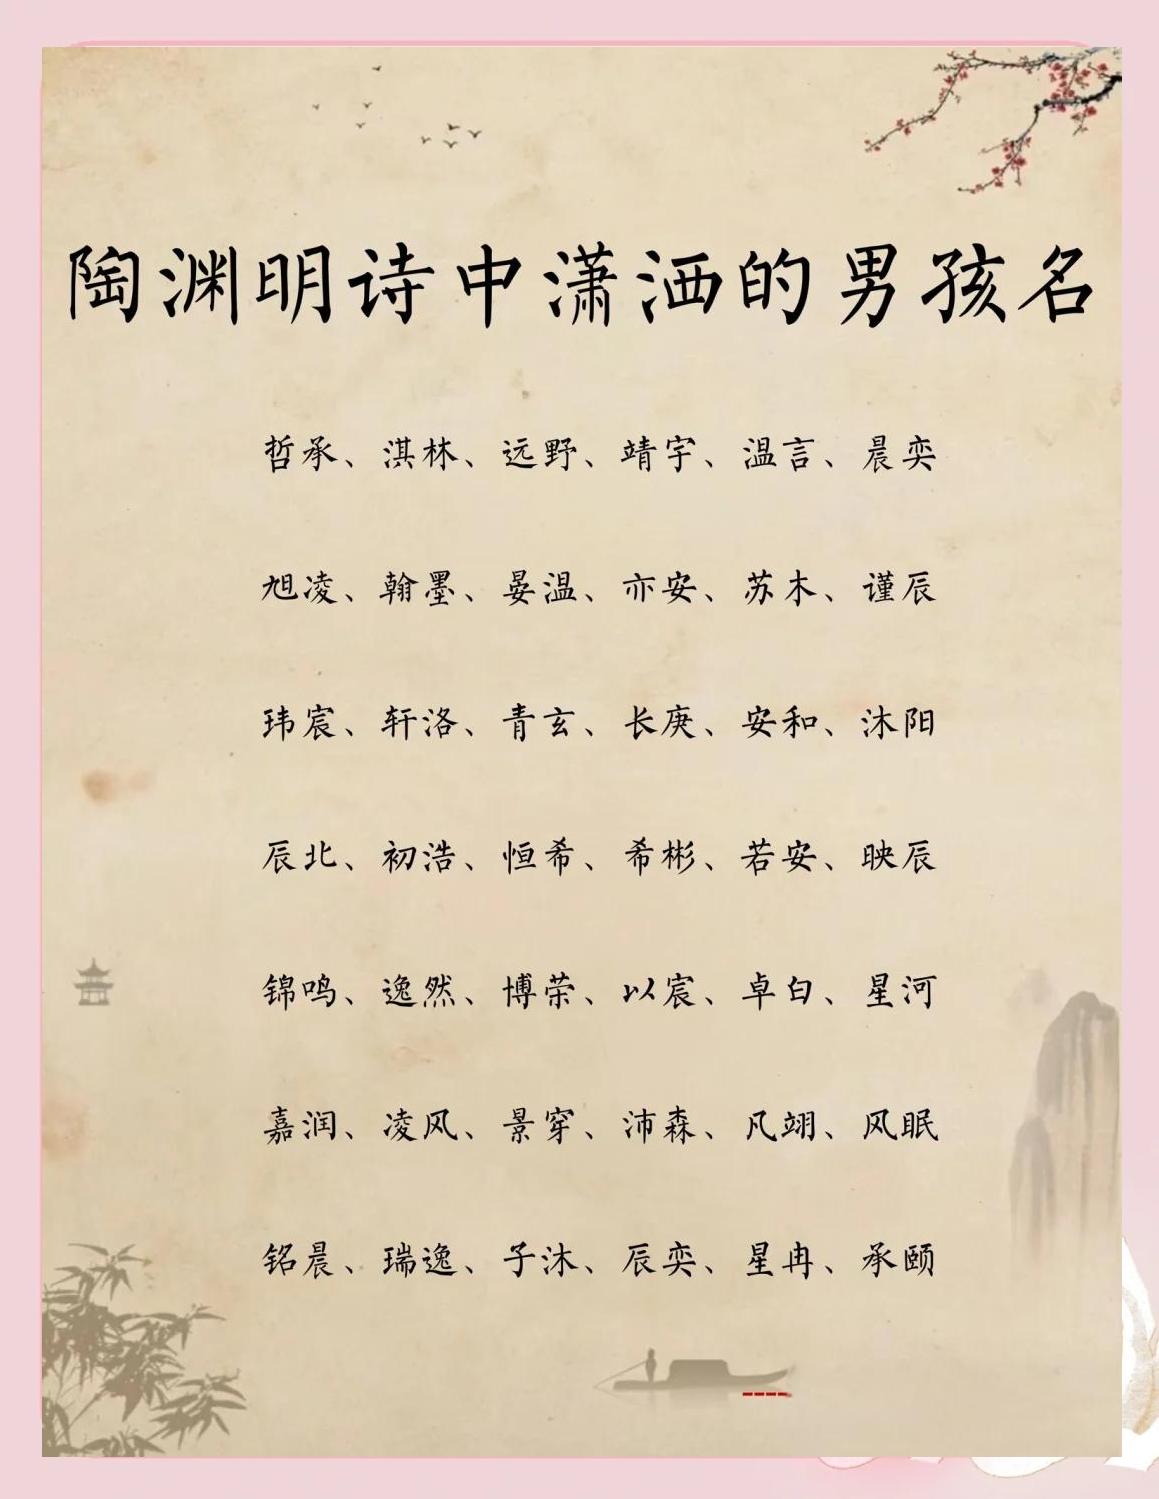 陶渊明诗中潇洒的男孩名
哲承、淇林、远野、靖宇、温言、晨奕
旭凌、翰墨、晏温、亦安、苏木、谨辰
玮宸、轩洛、青玄、长庚、安和、沐阳
辰北、初浩、恒希、希彬、若安、映辰
锦鸣、逸然、博荣、以宸、卓白、星河
嘉润、凌风、景穿、沛森、凡翊、风眠
铭晨、瑞逸、子沐、辰奕、星冉、承颐